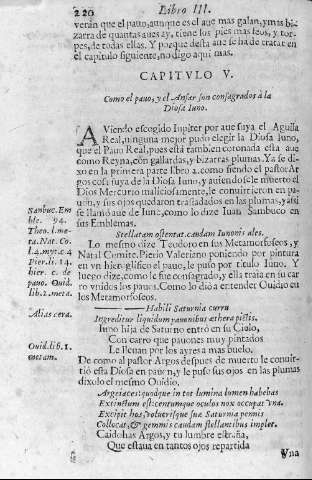 220 Libro III.
verán que el pauo, aunque es el aue mas galan, y mas bi-
zarra de quantas aues ay, tiene los pies mas feos, y tor-
pes, de todas ellas. Y porque desta aue se ha de tratar en
el capitulo siguiente, no digo aqui mas.
CAPITVLO V.
Como el pauo, y el Ansar son consagrados à la
Diosa Iuno.
AViendo escogido Iupiter por aue suya el Aguila
Real, ninguna mejor pudo elegir la Diosa Iuno,
que el Pauo Real, pues està tambien coronada esta aue
como Reyna, con gallardas, y bizarras plumas. Ya se di-
xo en la primera parte libro 2. como siendo el pastor Ar-
gos cosa suya de la Diosa Iuno, y auiendosele muerto el
Dios Mercurio maliciosamente, le conuirtieron en pa-
uon, y sus ojos quedaron trasladados en las plumas, y assi
se llamò aue de Iuno, como lo dize Iuan Sambuco en
sus Emblemas.
Sambuc. Em
ble. 94.
Theo. l. me-
ta. Nat. Co-
l. 4. myt. c. 4
Pier. li. 24.
hier. c. de
pauo. Ouid.
lib. 2. meta.
Stellatam ostentat caudam Iunonis ales.
Lo mesmo dize Teodoro en sus Metamorfoseos, y
Natal Comite. Pierio Valeriano poniendo por pintura
en vn hieroglifico el pauo, le puso por titulo Iuno. Y
luego dize, como le fue consagrado, y ella traia en su car
ro vnidos los pauos. Como lo diò a entender Ouidio en
los Metamorfoseos.
Alias cera.
Habili Saturnia curru
Ingreditur liquidum pauonibus æthera pictis.
Iuno hija de Saturno entrò en su Cielo,
Con carro que pauones muy pintados
Le lleuan por los ayres a mas buelo.
Ouid. lib. 1.
metam.
De como al pastor Argos despues de muerto le conuir-
tiò esta Diosa en pauon, y le puso sus ojos en las plumas
dixolo el mesmo Ouidio.
Arge iaces: quodque in tot lumina lumen habebas
Extinctum est: centumque oculos nox occupat vna.
Excipit hos, volucrisque suæ Saturnia pennis
Collocat, & gemmis caudam stellantibus implet.
Caido has Argos, y tu lumbre estraña,
Que estaua en tantos ojos repartida
Vna